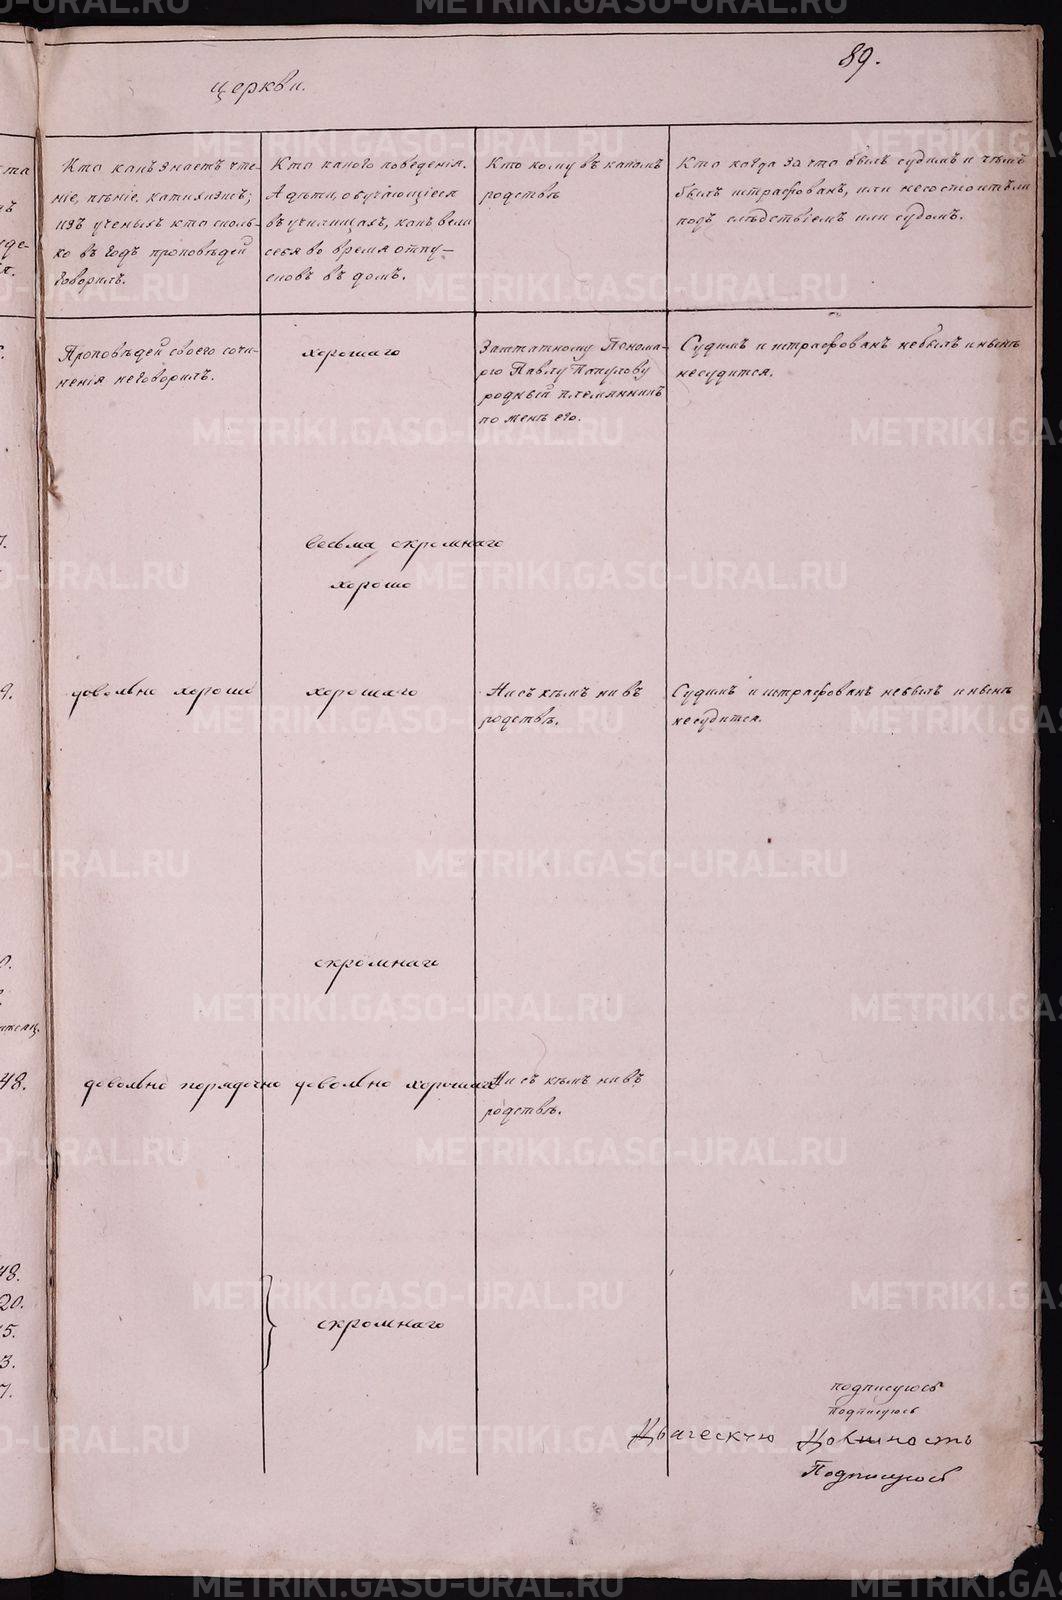 89.
церкви.
Кто какъ знаетъ чте-
ніе, пѣніе, катихизисъ;
изъ ученыхъ кто сколь-
ко въ годъ проповѣдей
говорилъ.
Кто какого поведенія.
А дѣти, обучающіеся
въ училищахъ, какъ вели
себя во время отпу-
сковъ въ домъ.
Кто кому въ какомъ
родствѣ
Кто когда за что былъ судимъ и чѣмъ
былъ штрафованъ, или не состоитъ ли
подъ слѣдствіемъ или судомъ.
Проповѣдей своего сочи-
ненія не говорилъ.
хорошаго
Заштатному Понома-
рю Павлу
родный племянникъ
по женѣ его.
Судимъ и штрафованъ небылъ и нынѣ
несудится.
весьма скромнаго
хорошо
довольно хорошо
хорошаго
Ни съ кѣмъ ни въ
родствѣ.
Судимъ и штрафованъ небылъ и нынѣ
несудится.
скромнаго
довольно порядочно
довольно хорошаго
Ни съ кѣмъ ни въ
родствѣ.
скромнаго
подписуюсь
Подписуюсь
Дьяческую Должность
Подписуюсь
9.
48.
48.
20.
15.
3.
7.
METRIKI.GASO-URAL.RU